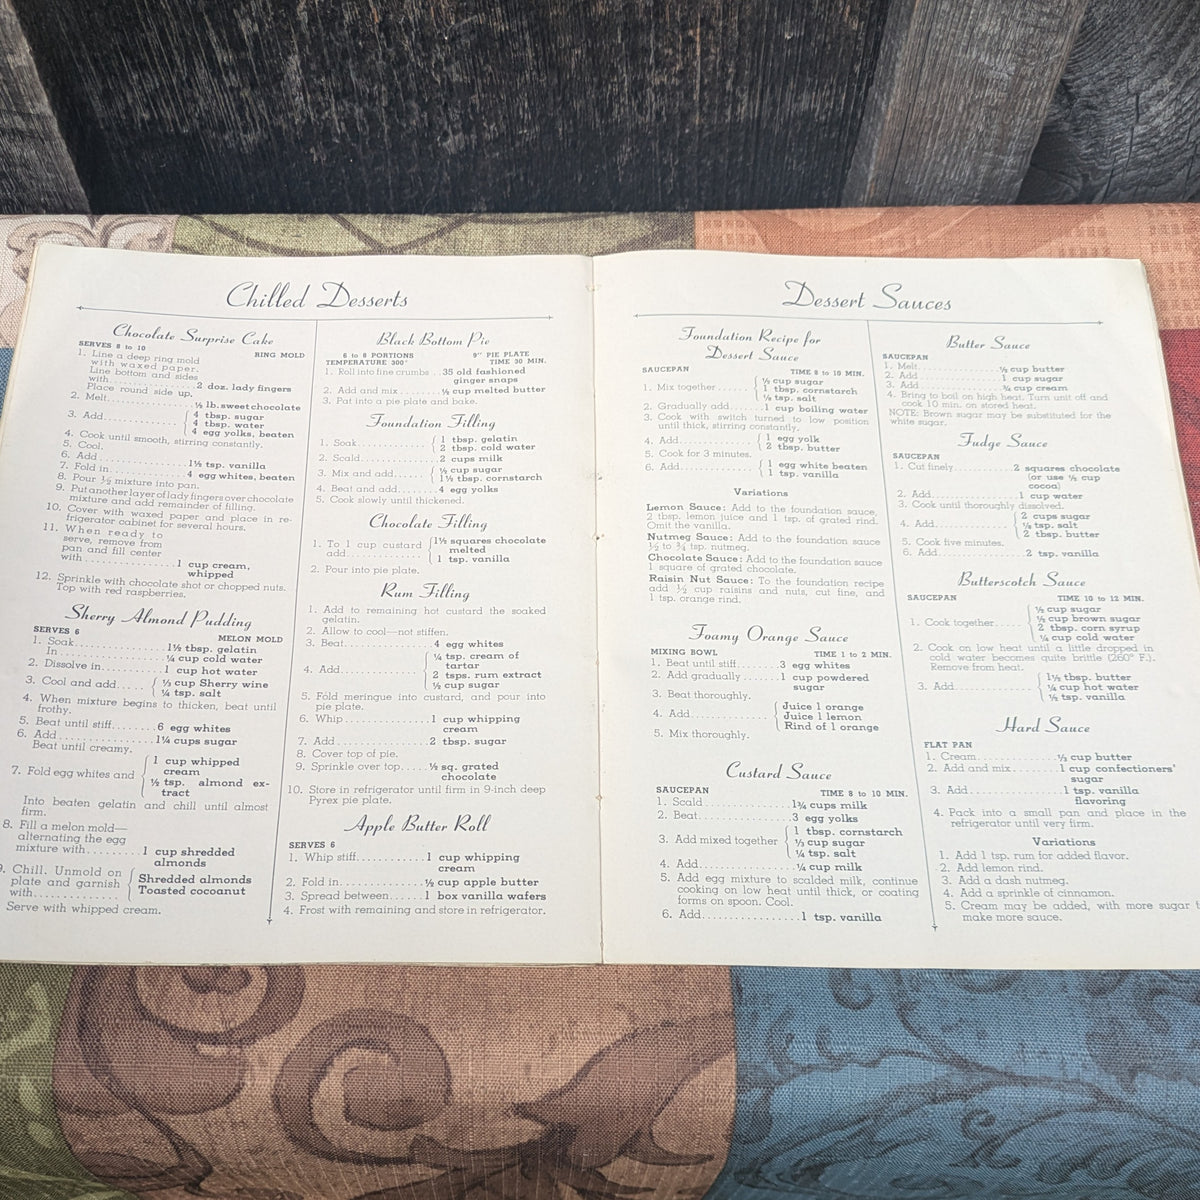 Chilled Desserts
Chocolate Surprise Cake
SERVES 8 to 10
RING MOLD
1. Line a deep ring mold
with waxed paper.
Line bottom and sides
with 2 doz. lady fingers
Place round side up.
2. Melt ½ lb. sweet chocolate
3. Add { 4 tbsp. sugar
4 tbsp. water
4 egg yolks, beaten
4. Cook until smooth, stirring constantly.
5. Cool.
6. Add 1½ tsp. vanilla
7. Fold in 4 egg whites, beaten
8. Pour ½ mixture into pan.
9. Put another layer of lady fingers over chocolate
mixture and add remainder of filling.
10. Cover with waxed paper and place in re-
frigerator cabinet for several hours.
11. When ready to
serve, remove from
pan and fill center
with 1 cup cream,
whipped
12. Sprinkle with chocolate shot or chopped nuts.
Top with red raspberries.
Sherry Almond Pudding
SERVES 6
MELON MOLD
1. Soak 1½ tbsp. gelatin
In ¼ cup cold water
2. Dissolve in 1 cup hot water
3. Cool and add { ⅓ cup Sherry wine
¼ tsp. salt
4. When mixture begins to thicken, beat until
frothy.
5. Beat until stiff 6 egg whites
6. Add 1¼ cups sugar
Beat until creamy.
7. Fold egg whites and { 1 cup whipped
cream
½ tsp. almond ex-
tract
Into beaten gelatin and chill until almost
firm.
8. Fill a melon mold—
alternating the egg
mixture with 1 cup shredded
almonds
9. Chill. Unmold on
plate and garnish
with { Shredded almonds
Toasted cocoanut
Serve with whipped cream.
Black Bottom Pie
6 to 8 PORTIONS
TEMPERATURE 300°
9" PIE PLATE
TIME 30 MIN.
1. Roll into fine crumbs 35 old fashioned
ginger snaps
2. Add and mix ½ cup melted butter
3. Pat into a pie plate and bake.
Foundation Filling
1. Soak { 1 tbsp. gelatin
2 tbsp. cold water
2. Scald 2 cups milk
3. Mix and add { ½ cup sugar
1½ tbsp. cornstarch
4. Beat and add 4 egg yolks
5. Cook slowly until thickened.
Chocolate Filling
1. To 1 cup custard
add { 1½ squares chocolate
melted
1 tsp. vanilla
2. Pour into pie plate.
Rum Filling
1. Add to remaining hot custard the soaked
gelatin.
2. Allow to cool—not stiffen.
3. Beat 4 egg whites
4. Add { ¼ tsp. cream of
tartar
2 tsps. rum extract
½ cup sugar
5. Fold meringue into custard, and pour into
pie plate.
6. Whip 1 cup whipping
cream
7. Add 2 tbsp. sugar
8. Cover top of pie.
9. Sprinkle over top ½ sq. grated
chocolate
10. Store in refrigerator until firm in 9-inch deep
Pyrex pie plate.
Apple Butter Roll
SERVES 6
1. Whip stiff 1 cup whipping
cream
2. Fold in ½ cup apple butter
3. Spread between 1 box vanilla wafers
4. Frost with remaining and store in refrigerator.
Dessert Sauces
Foundation Recipe for
Dessert Sauce
SAUCEPAN
TIME 8 to 10 MIN.
1. Mix together { ½ cup sugar
1 tbsp. cornstarch
⅛ tsp. salt
2. Gradually add 1 cup boiling water
3. Cook with switch turned to low position
until thick, stirring constantly.
4. Add { 1 egg yolk
2 tbsp. butter
5. Cook for 3 minutes.
6. Add { 1 egg white beaten
1 tsp. vanilla
Variations
Lemon Sauce: Add to the foundation sauce,
2 tbsp. lemon juice and 1 tsp. of grated rind.
Omit the vanilla.
Nutmeg Sauce: Add to the foundation sauce
½ to ¾ tsp. nutmeg.
Chocolate Sauce: Add to the foundation sauce
1 square of grated chocolate.
Raisin Nut Sauce: To the foundation recipe
add ½ cup raisins and nuts, cut fine, and
1 tsp. orange rind.
Foamy Orange Sauce
MIXING BOWL
TIME 1 to 2 MIN.
1. Beat until stiff 3 egg whites
2. Add gradually 1 cup powdered
sugar
3. Beat thoroughly.
4. Add { Juice 1 orange
Juice 1 lemon
Rind of 1 orange
5. Mix thoroughly.
Custard Sauce
SAUCEPAN
TIME 8 to 10 MIN.
1. Scald 1¾ cups milk
2. Beat 3 egg yolks
3. Add mixed together { 1 tbsp. cornstarch
⅓ cup sugar
¼ tsp. salt
4. Add ¼ cup milk
5. Add egg mixture to scalded milk, continue
cooking on low heat until thick, or coating
forms on spoon. Cool.
6. Add 1 tsp. vanilla
Butter Sauce
SAUCEPAN
1. Melt ½ cup butter
2. Add 1 cup sugar
3. Add ¾ cup cream
4. Bring to boil on high heat. Turn unit off and
cook 10 min. on stored heat.
NOTE: Brown sugar may be substituted for the
white sugar.
Fudge Sauce
SAUCEPAN
1. Cut finely 2 squares chocolate
(or use ½ cup
cocoa)
2. Add 1 cup water
3. Cook until thoroughly dissolved.
4. Add { 2 cups sugar
⅛ tsp. salt
2 tbsp. butter
5. Cook five minutes.
6. Add 2 tsp. vanilla
Butterscotch Sauce
SAUCEPAN
TIME 10 to 12 MIN.
1. Cook together { ½ cup sugar
½ cup brown sugar
2 tbsp. corn syrup
¼ cup cold water
2. Cook on low heat until a little dropped in
cold water becomes quite brittle (260° F.).
Remove from heat.
3. Add { 1½ tbsp. butter
¼ cup hot water
½ tsp. vanilla
Hard Sauce
FLAT PAN
1. Cream ⅓ cup butter
2. Add and mix 1 cup confectioners'
sugar
3. Add 1 tsp. vanilla
flavoring
4. Pack into a small pan and place in the
refrigerator until very firm.
Variations
1. Add 1 tsp. rum for added flavor.
2. Add lemon rind.
3. Add a dash nutmeg.
4. Add a sprinkle of cinnamon.
5. Cream may be added, with more sugar
make more sauce.